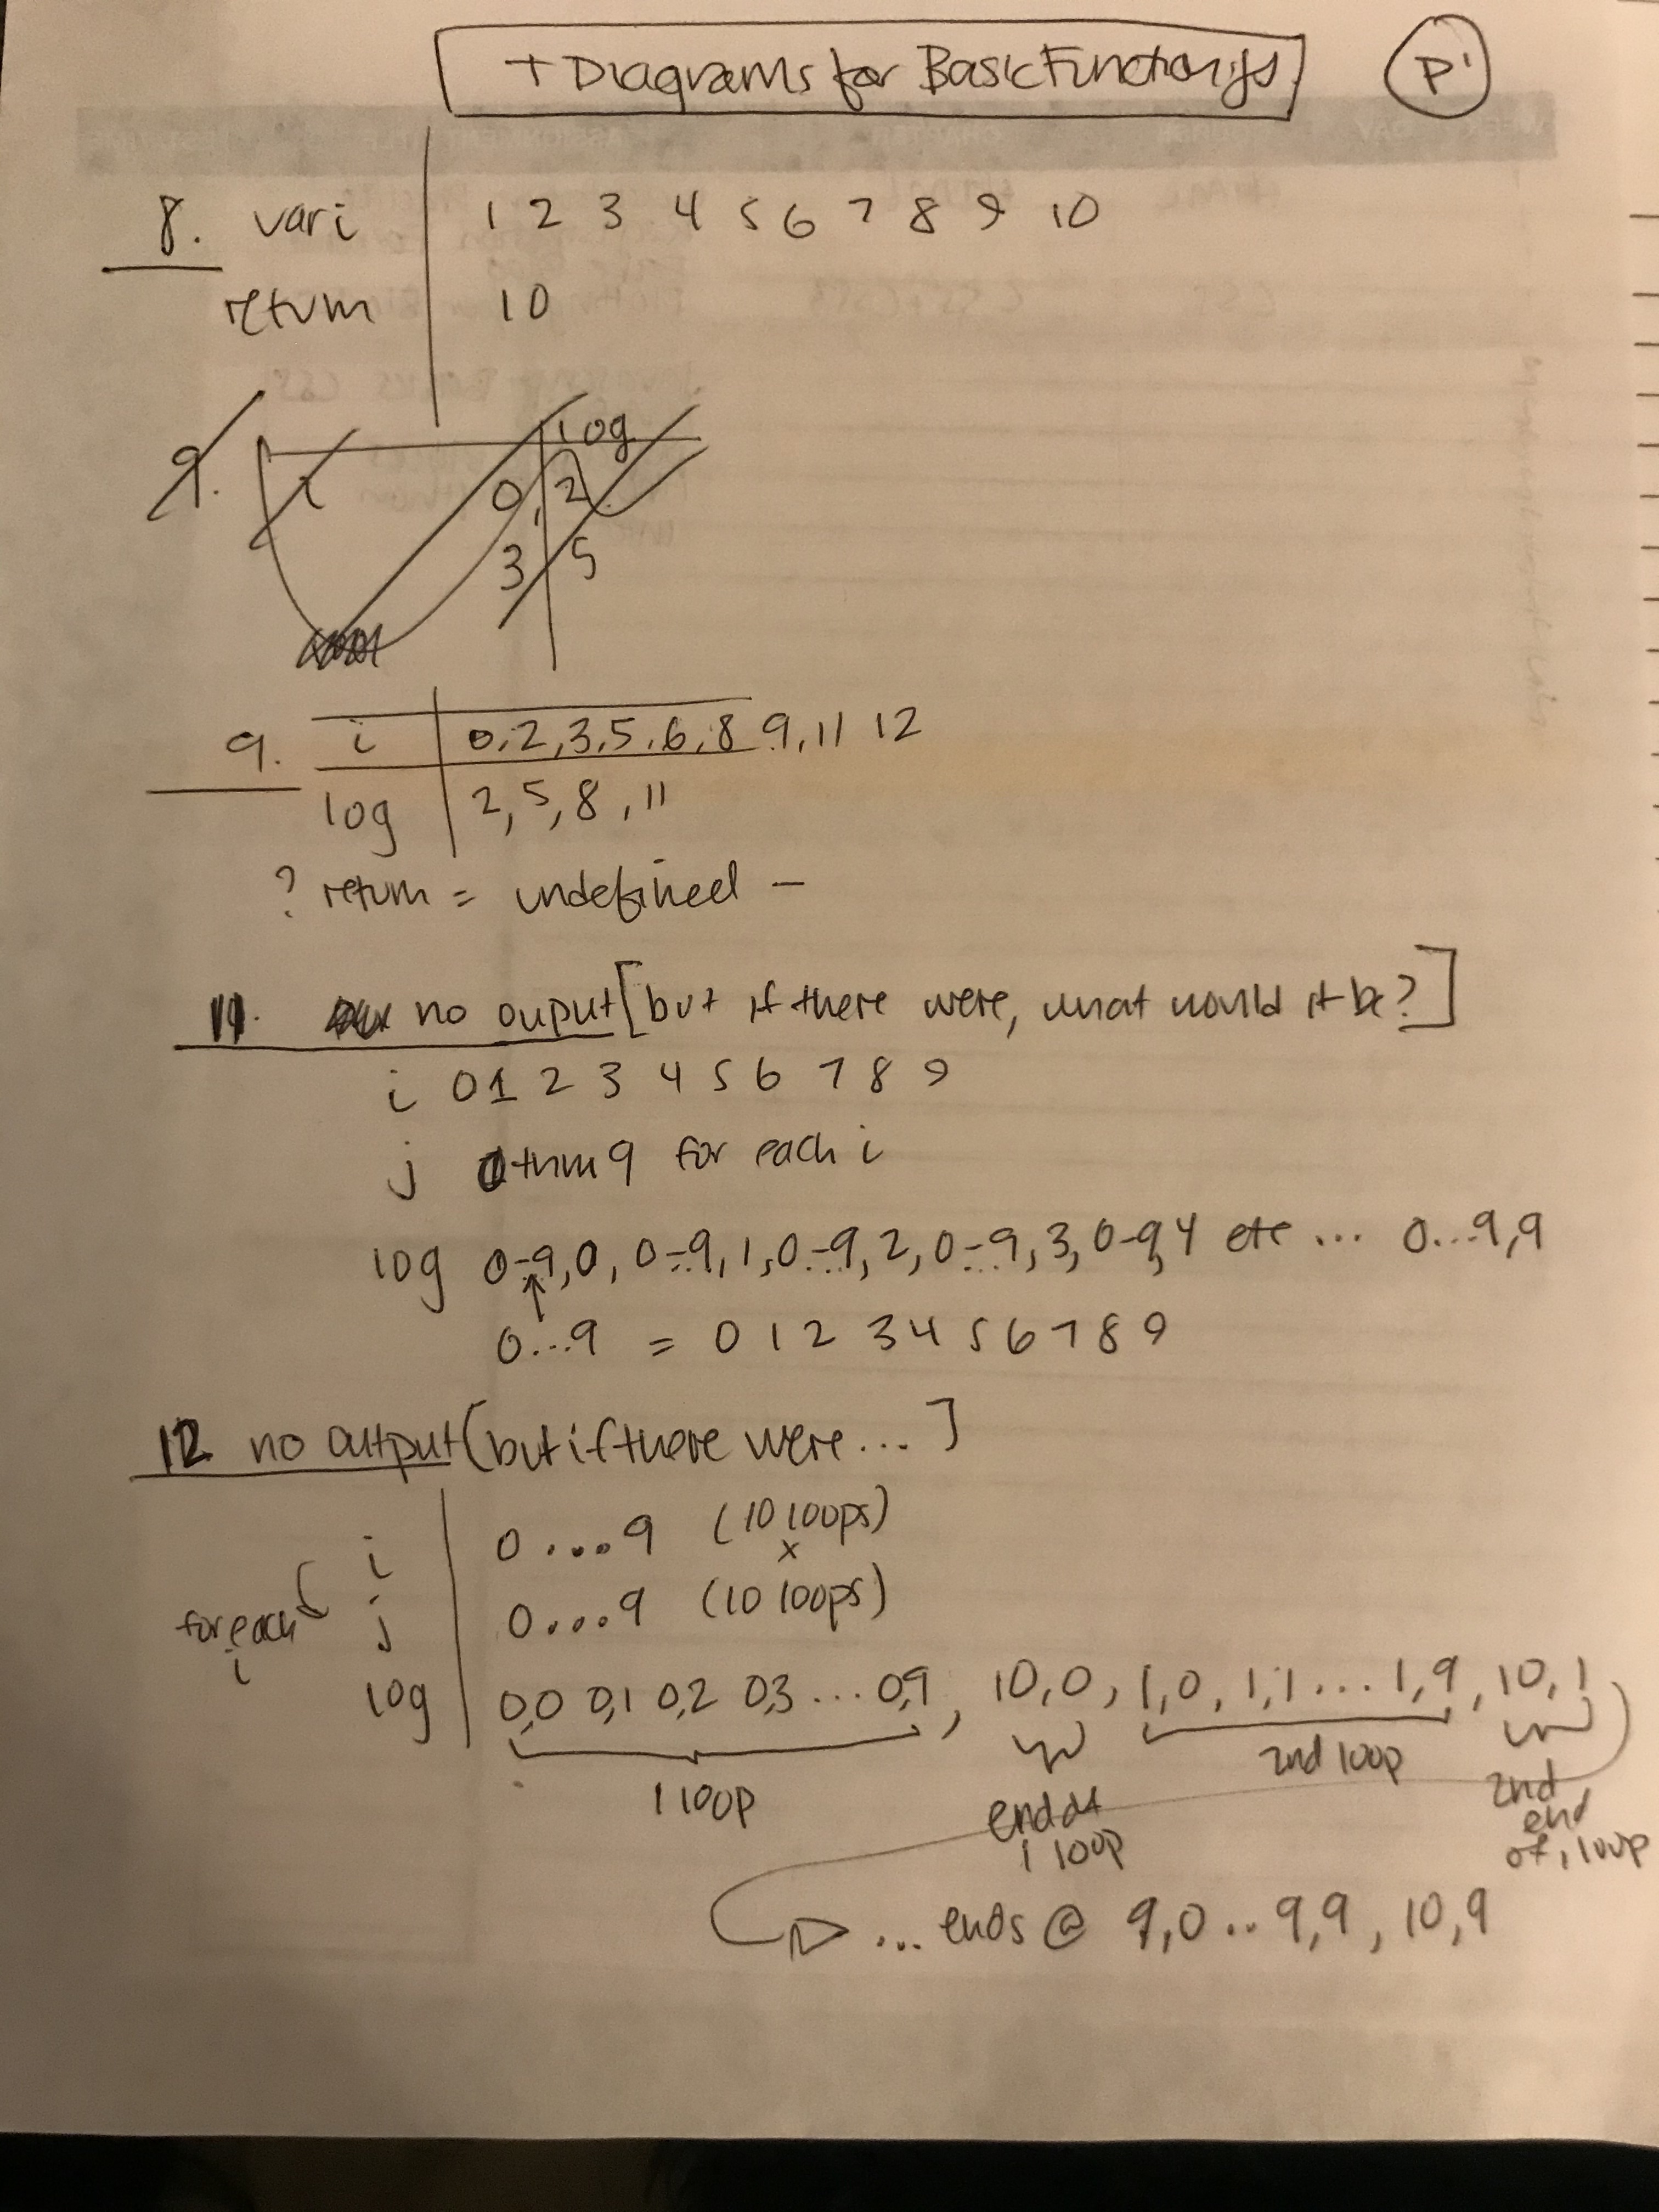 T Diagrams for Basic Functions.js
P1
8. var i 1 2 3 4 5 6 7 8 9 10
return 10
log
9. i 0, 2
3 5
9. i 0,2,3,5,6,8 9,11 12
log 2,5,8,11
? return = undefined -
11. no ouput [but if there were, what would it be?]
i 0 1 2 3 4 5 6 7 8 9
j 0 thru 9 for each i
log 0-9,0, 0...9,1,0...9,2,0...9,3,0-9,4 etc ... 0...9,9
0...9 = 0 1 2 3 4 5 6 7 8 9
12 no output (but if there were ...]
i 0....9 (10 loops)
x
for each i j 0....9 (10 loops)
log 0,0 0,1 0,2 0,3 ... 0,9, 10,0, 1,0, 1,1... 1,9, 10,1
1 loop end of 1 loop 2nd loop 2nd end of, loop
... ends @ 9,0 .. 9,9, 10,9